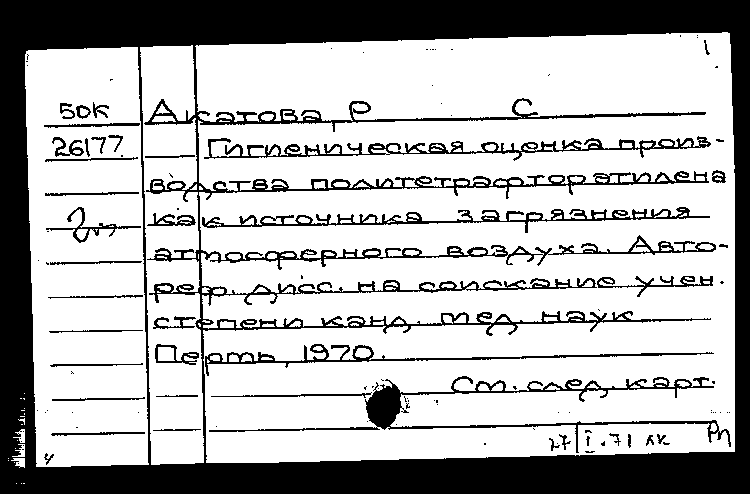 1
50К Акатова, Р С
26177 Гигиеническая оценка произ-
водства политетрафторэтилена
как источника загрязнения
атмосферного воздуха. Авто-
реф. дисс. на соискание учен.
степени канд. мед. наук
Пермь, 1970.
См. след. карт.
27/I.71 ЛК Рп